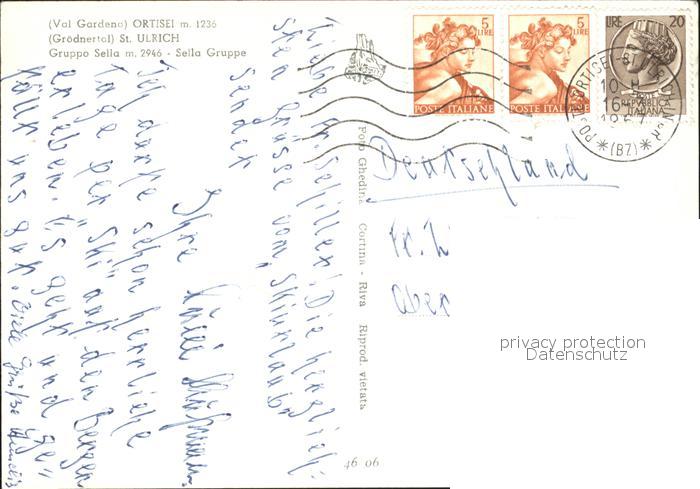 (Val Gardena) ORTISEI m. 1236
(Grödnertal) St. ULRICH
Gruppo Sella m. 2946 - Sella Gruppe
5
LIRE
POSTE ITALIANE
5
LIRE
POSTE ITALIANE
LIRE 20
REPVBBLICA
ITALIANA
(BZ)
Deutschland
Fr.
Aber
Foto Ghedina Cortina - Riva Riprod. vietata
46 06
privacy protection
Datenschutz
Liebe Fr. Die herzlich-
sten Grüsse vom Skiurlaub
sendet
Ihre
Ich durfte schon herrliche
Tage per "Ski" auf den Bergen
erleben. Es geht und ge-
fällt uns gut. Viele Grüße